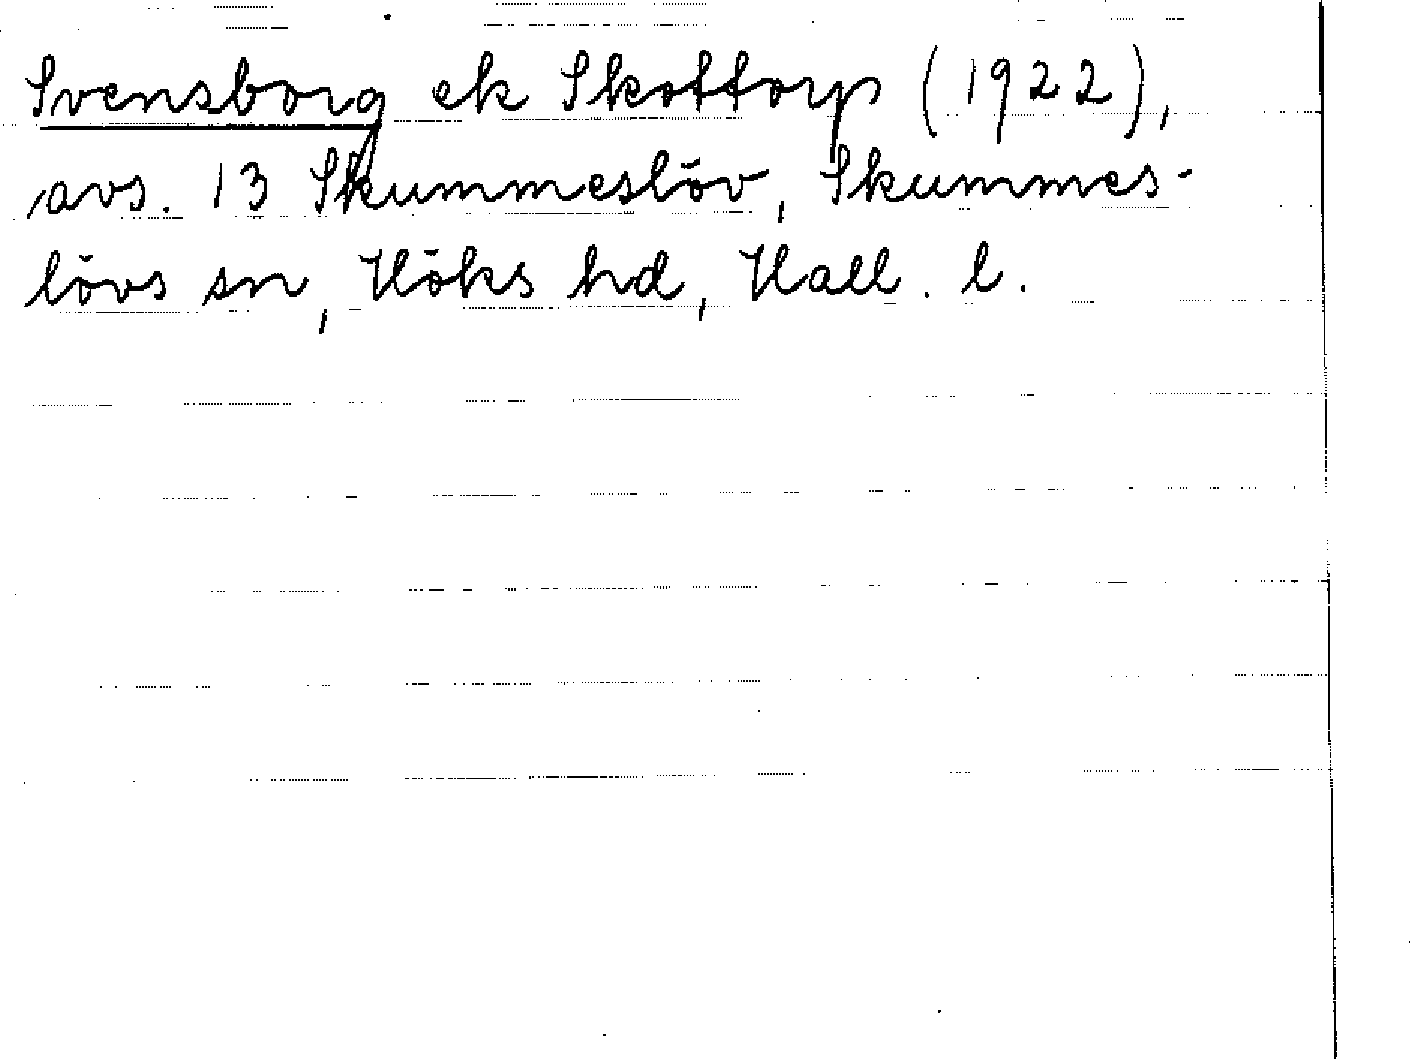 Svensborg ek Skottorp (1922),
avs. 13 Skummeslöv, Skummes-
lövs sn, Höks hd, Hall. l.